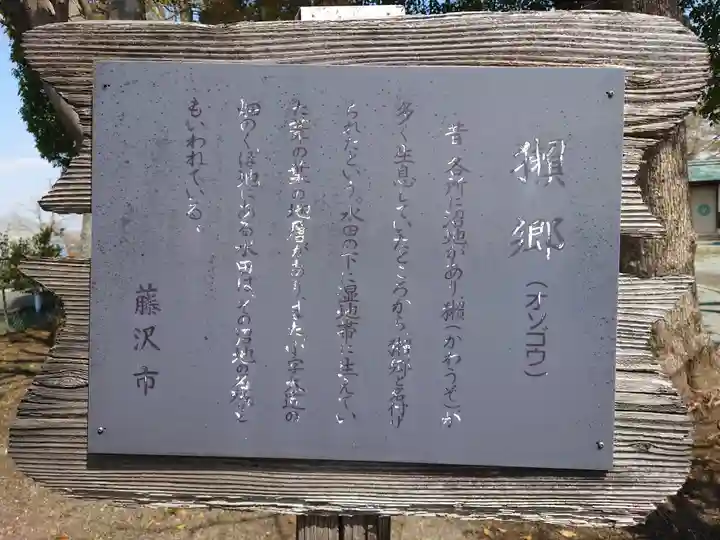 獺郷(オソゴウ)
昔 各所に沼地があり獺(かわうそ)が
多く生息していたところから獺郷と名付け
られたという。水田の下に湿地帯に生えてい
た芽の葉の地層があり、また小字
畑のくぼ地にある水田は、その沼地の名残と
もいわれている。
藤沢市